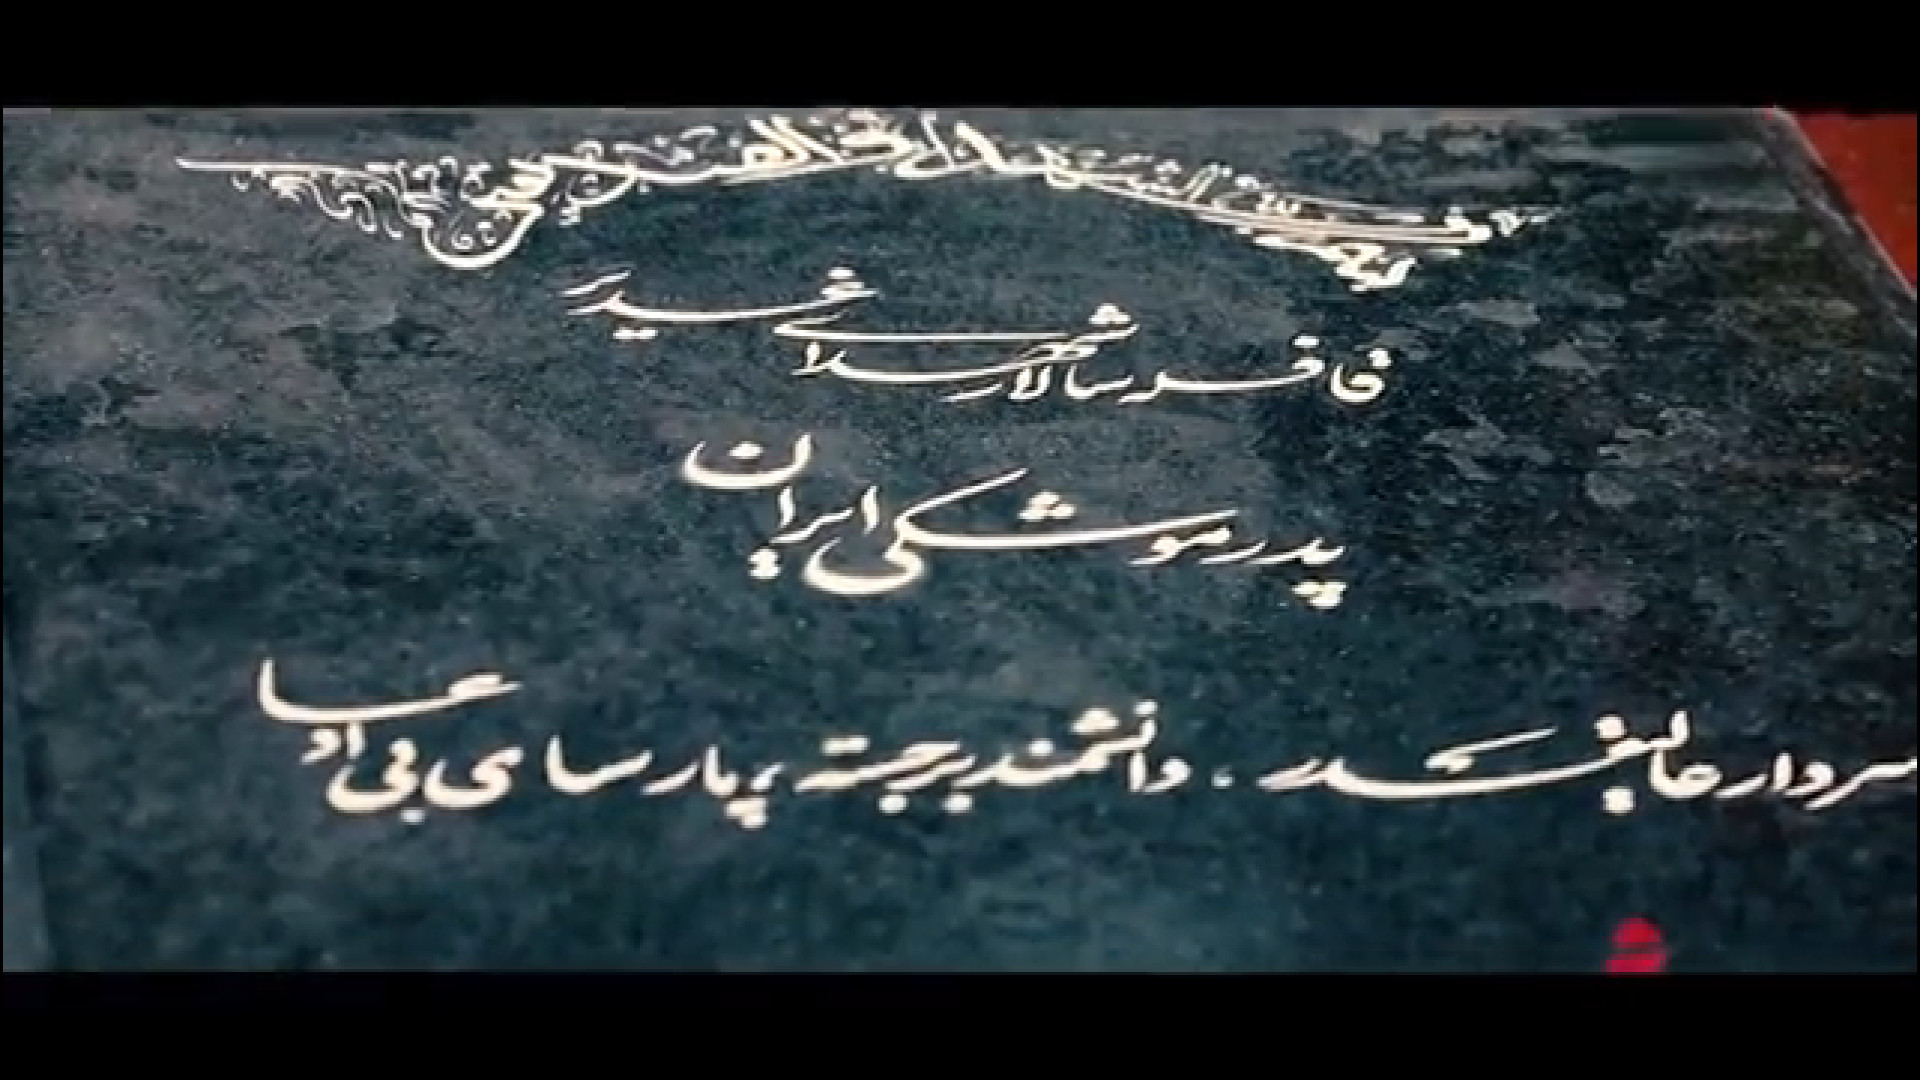 قافله سالار شهدای غدیر
پدر موشکی ایران
سردار عالیقدر، دانشمند برجسته، پارسای بی ادعا